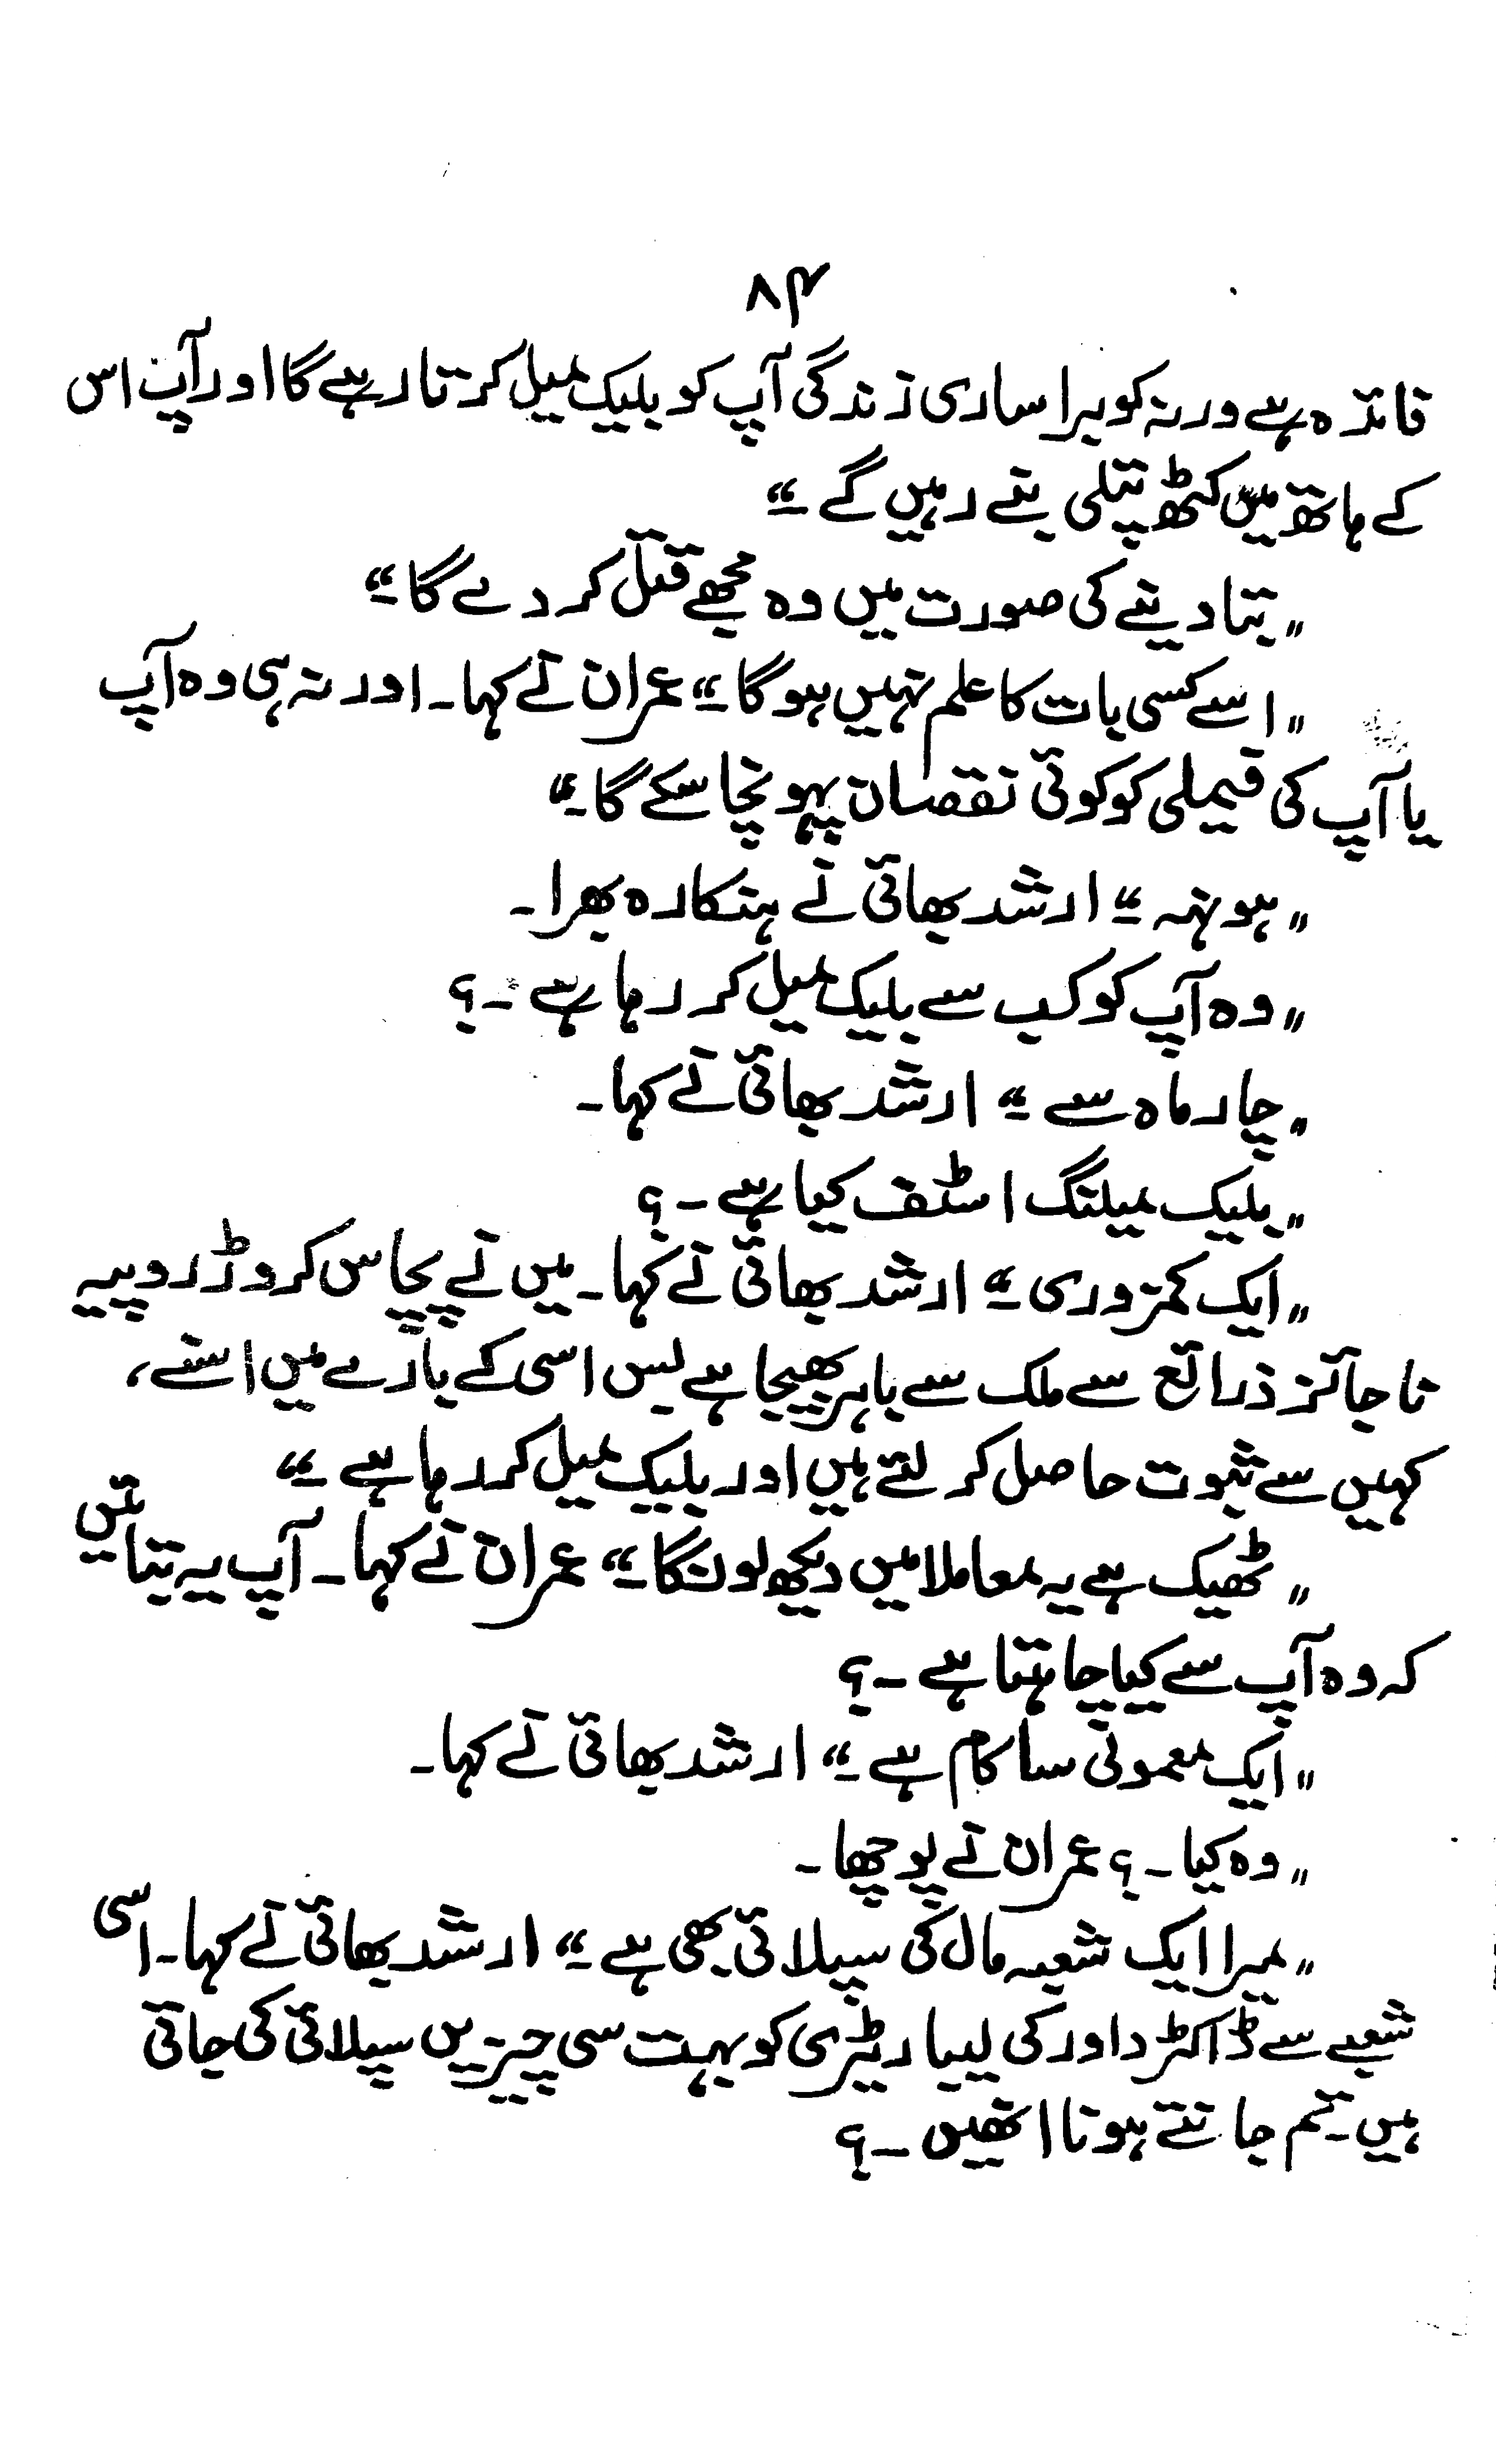 ۸۴
فائدہ ہے ورنہ کوبرا ساری زندگی آپ کو بلیک میل کرتا رہے گا اور آپ اس
کے ہاتھ میں کٹھ پتلی بنے رہیں گے۔“
”بتا دینے کی صورت میں وہ مجھے قتل کر دے گا“
”اسے کسی بات کا علم نہیں ہوگا۔“ عمران نے کہا۔ اور نہ ہی وہ آپ
یا آپ کی فیملی کو کوئی نقصان پہونچا سکے گا۔“
”ہونہہ۔“ ارشد بھائی نے ہنکارہ بھرا۔
”وہ آپ کو کب سے بلیک میل کر رہا ہے۔؟
”چار ماہ سے۔“ ارشد بھائی نے کہا۔
”بلیک میلنگ اسٹف کیا ہے۔؟
”ایک کمزوری۔“ ارشد بھائی نے کہا۔ میں نے پچاس کروڑ روپیہ
ناجائز ذرائع سے ملک سے باہر بھیجا ہے بس اسی کے بارے میں اسنے،
کہیں سے ثبوت حاصل کر لئے ہیں اور بلیک میل کر رہا ہے۔“
”ٹھیک ہے یہ معاملا میں دیکھ لونگا۔“ عمران نے کہا۔ آپ یہ بتائیں
کہ وہ آپ سے کیا چاہتا ہے۔؟
”ایک معمولی سا کام ہے۔“ ارشد بھائی نے کہا۔
”وہ کیا۔؟ عمران نے پوچھا۔
”میرا ایک شعبہ مال کی سپلائی بھی ہے۔“ ارشد بھائی نے کہا۔ اسی
شعبے سے ڈاکٹر داور کی لیبارٹری کو بہت سی چیزیں سپلائی کی جاتی
ہیں۔ تم جانتے ہو نا انھیں۔؟